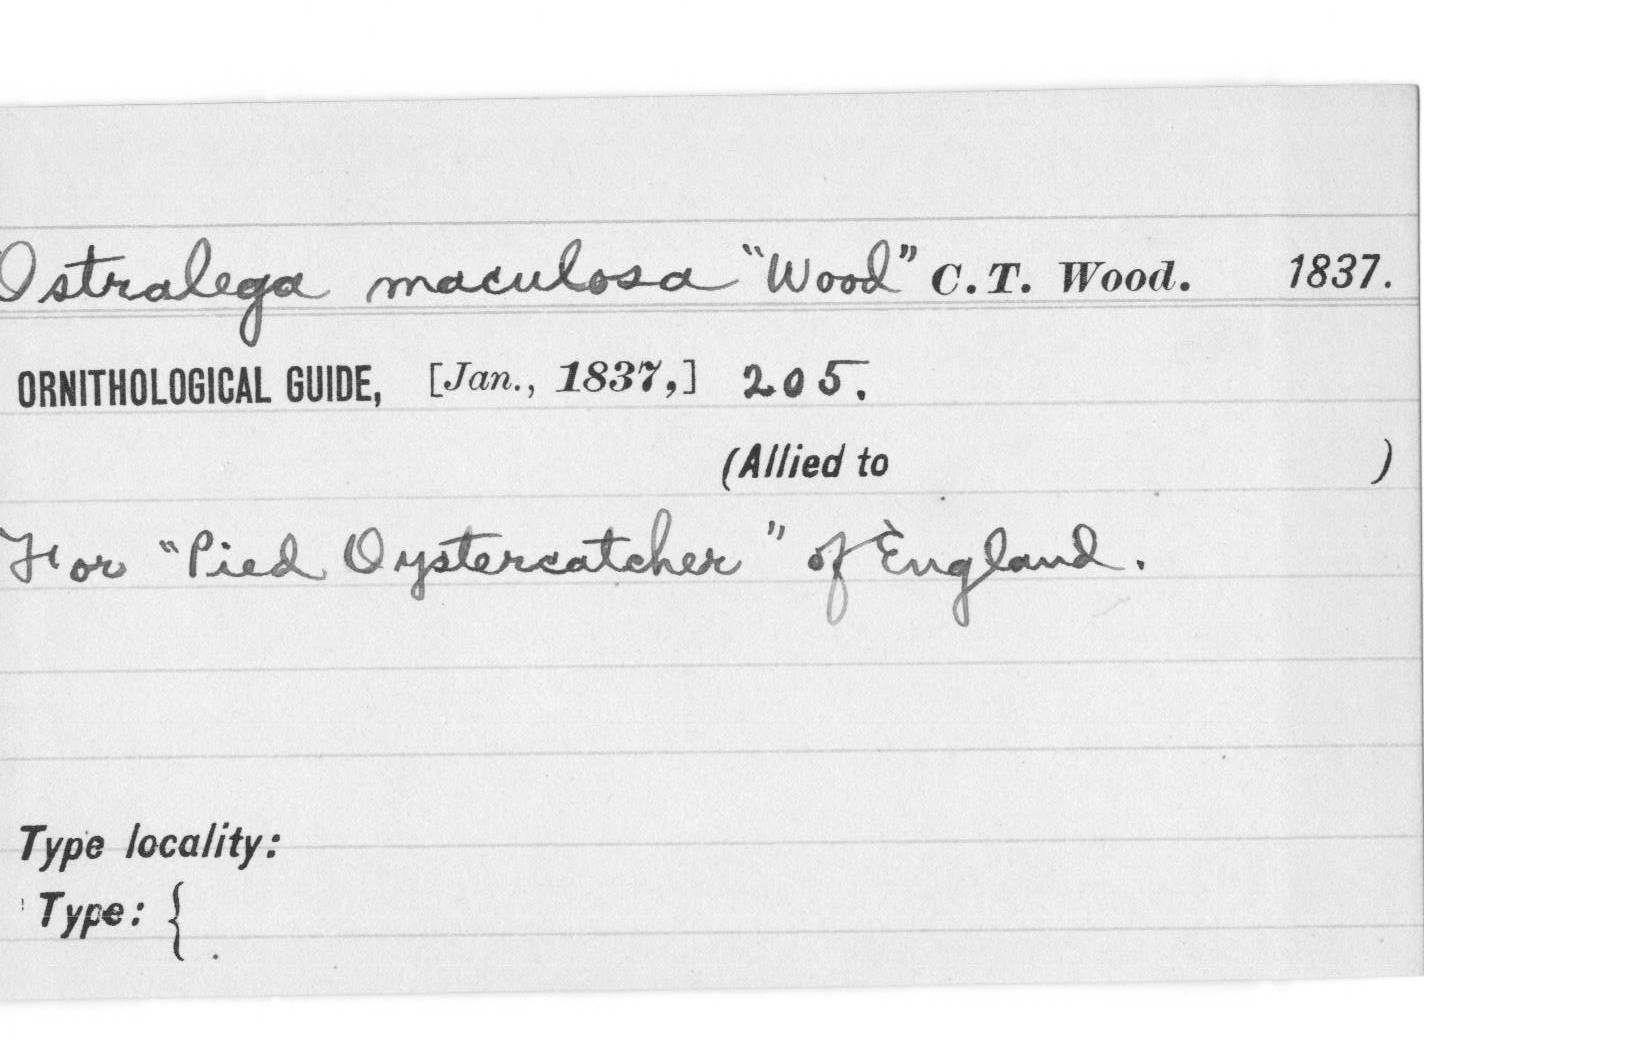 Ostralega maculosa "Wood" C. T. Wood. 1837.
ORNITHOLOGICAL GUIDE, [Jan., 1837,] 205.
(Allied to )
For "Pied Oystercatcher" of England.
Type locality:
Type: {